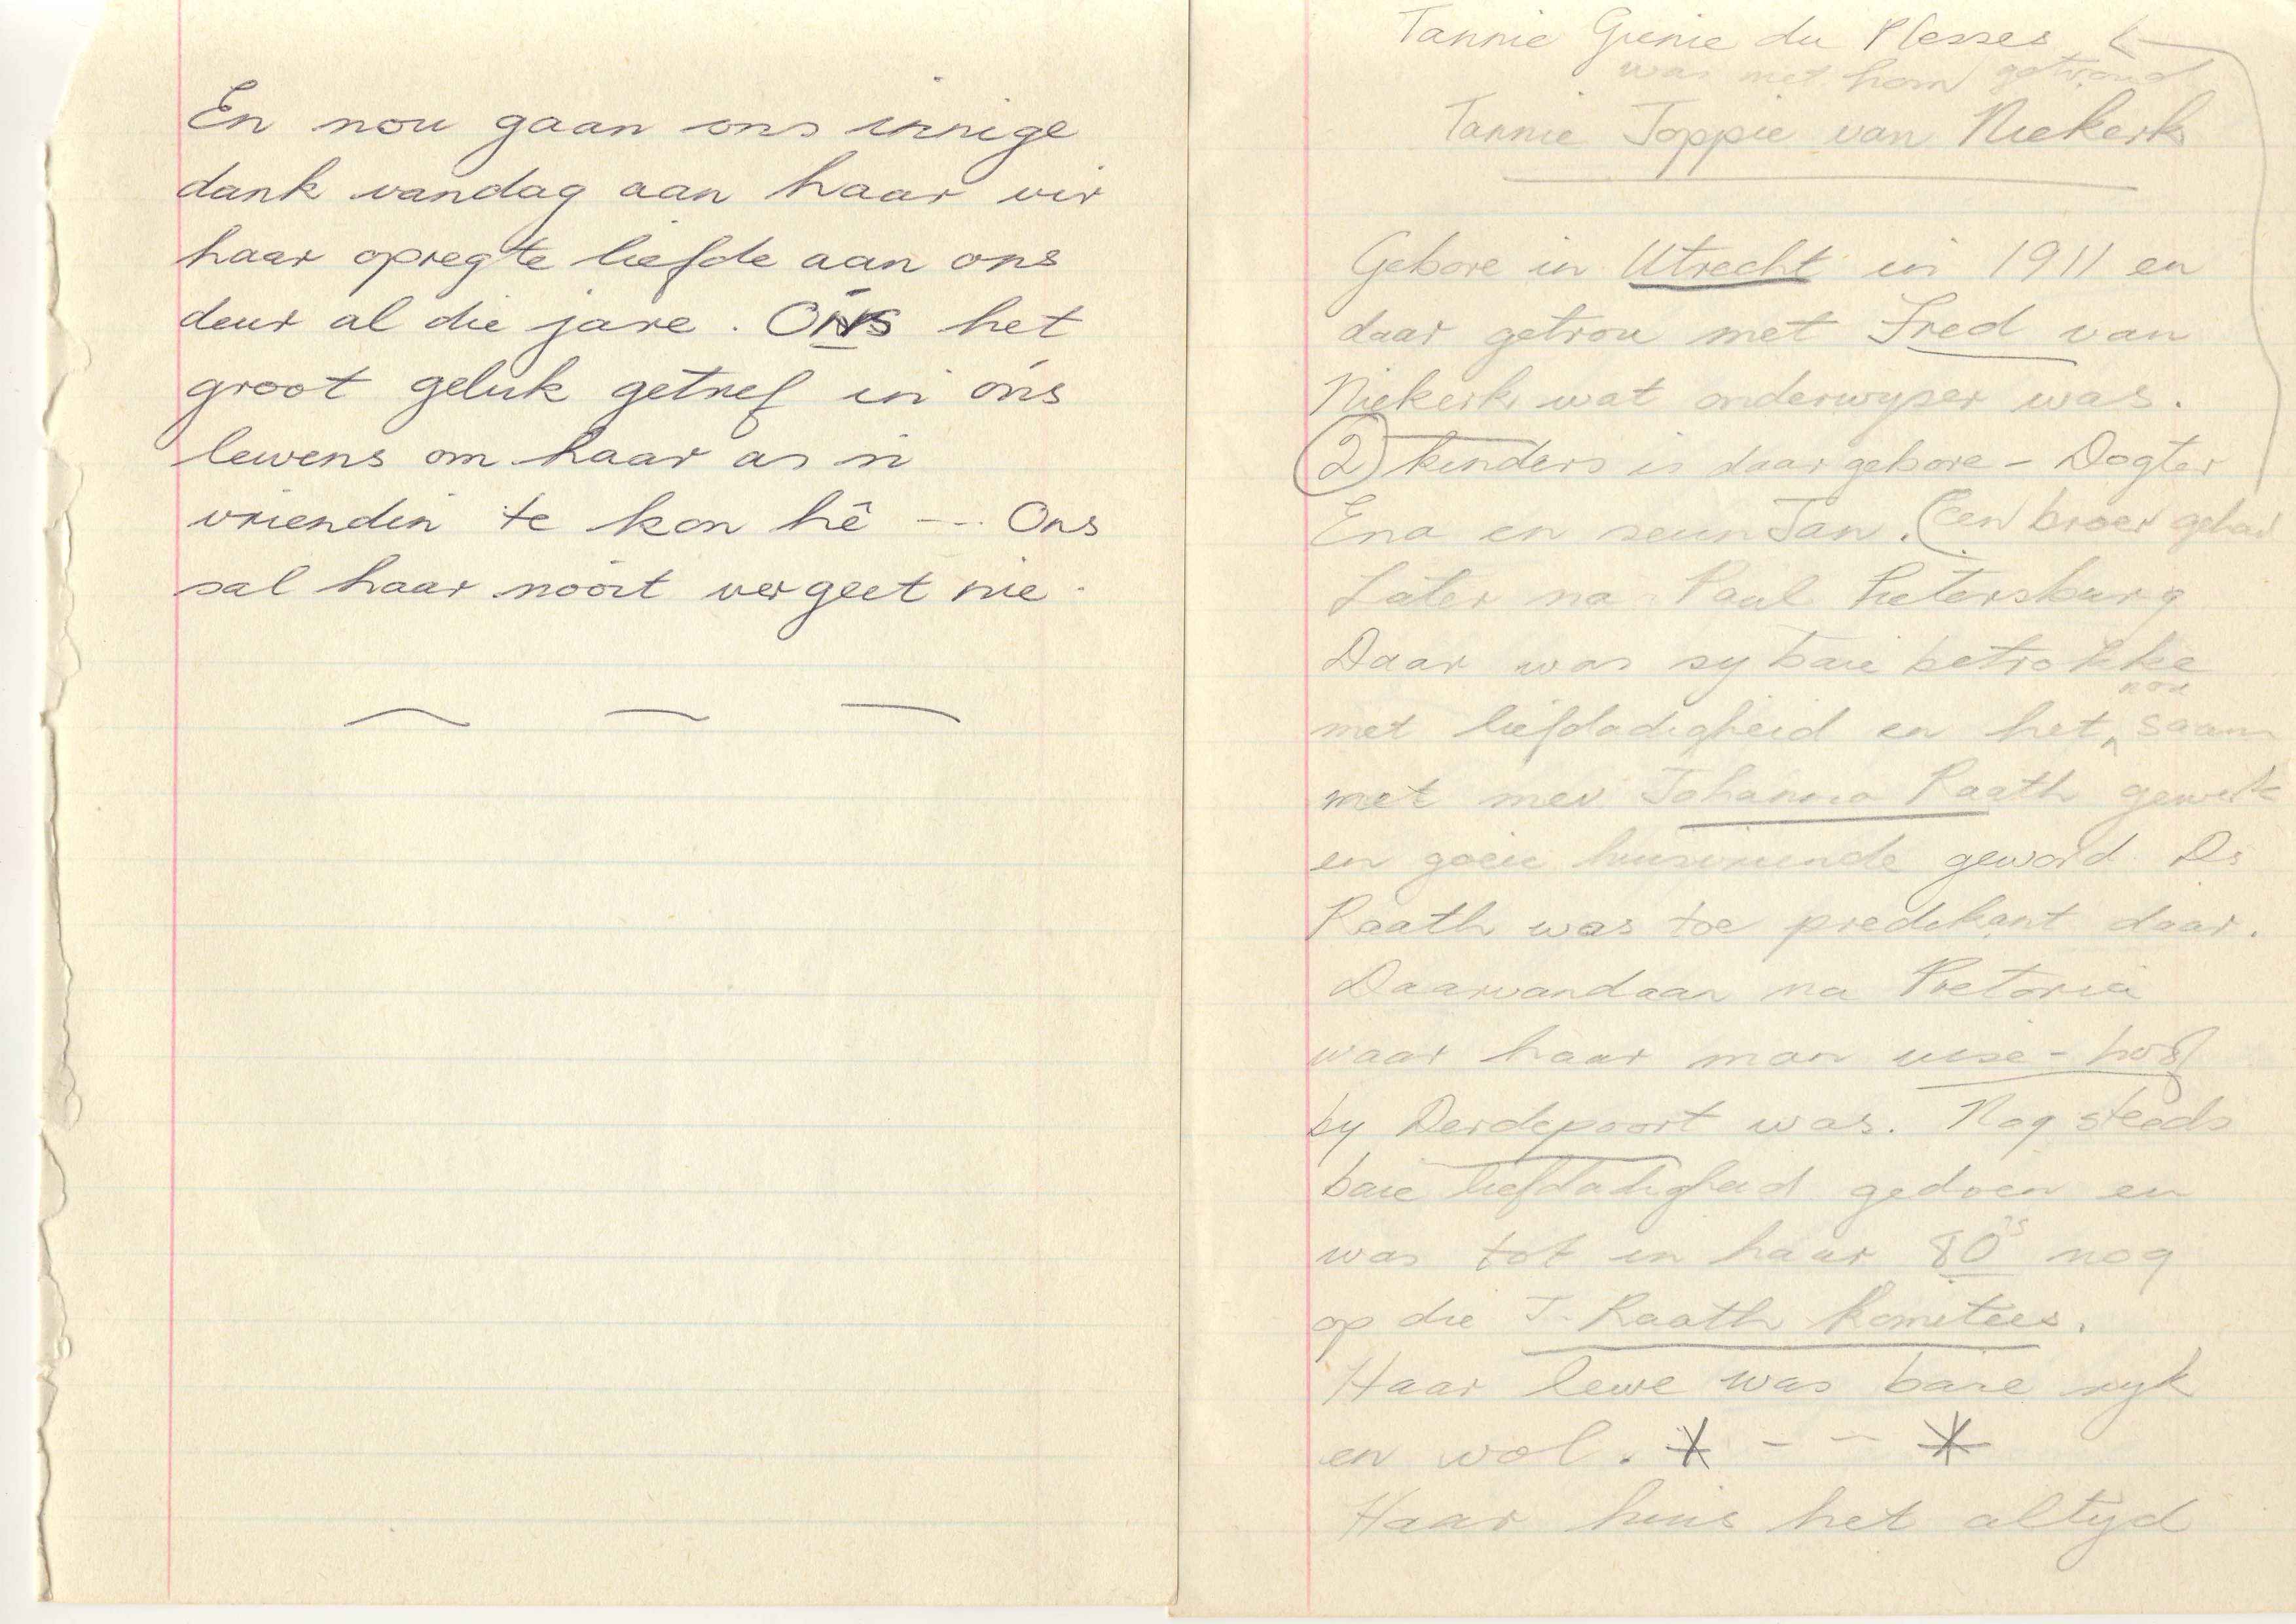 En nou gaan ons innige
dank vandag aan haar vir
haar opregte liefde aan ons
deur al die jare. Ons het
groot geluk getref in óns
lewens om haar as 'n
vriendin te kon hê --- Ons
sal haar nooit vergeet nie.
Tannie Grienie du Plesses
was met hom getroud
Tannie Joppie van Niekerk
Gebore in Utrecht in 1911 en
daar getrou met Fred van
Niekerk wat onderwyser was.
2 kinders is daar gebore - Dogter
Ena en seun Jan. (Een broer gehad
Later na Paul Pietersburg
Daar was sy baie betrokke
met liefdadigheid en het saam
met mev Johanna Raath gewerk
en goeie huisvriende geword. Ds
Raath was toe predikant daar.
Daarvandaan na Pretoria
waar haar man vise-hoof
by Derdepoort was. Nog steeds
baie liefdadigheid gedoen en
was tot in haar 80s nog
op die J. Raath komitees.
Haar lewe was baie ryk
en vol. * - - *
Haar huis het altyd